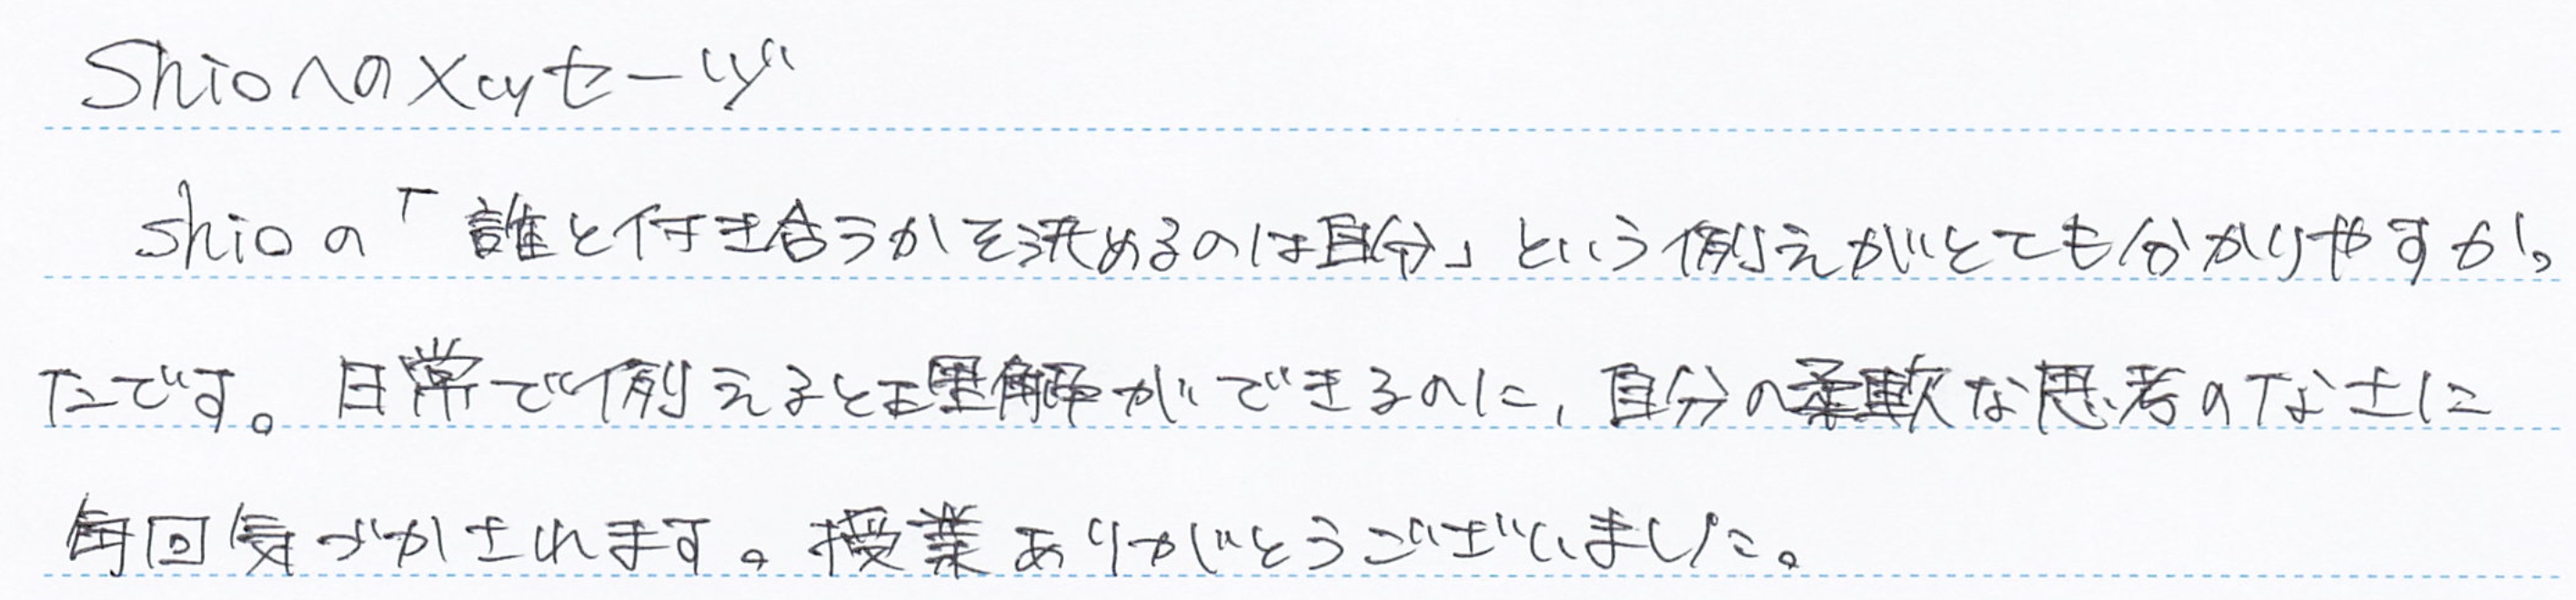 Shioへのメッセージ
shioの「誰と付き合うかを決めるのは自分」という例えがとても分かりやすかっ
たです。日常で例えると理解ができるのに、自分の柔軟な思考のなさに
毎回気づかされます。授業ありがとうございました。